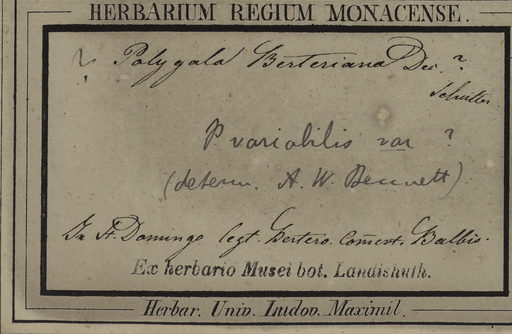 HERBARIUM REGIUM MONACENSE.
? Polygala Berteriana Dec. ?
P variabilis var ?
(determ. A. W. Bennett)
In St. Domingo legt. Bertero. Balbis.
Ex herbario Musei bot. Landishuth.
Herbar. Univ. Ludov. Maximil.